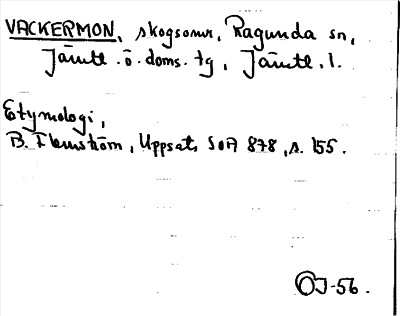 VACKERMON, skogsomr, Ragunda sn,
Jämtl. ö. doms. tg, Jämtl. l.
Etymologi,
B. Flemström, Uppsats SOA 878, s. 155.
OJ-56.